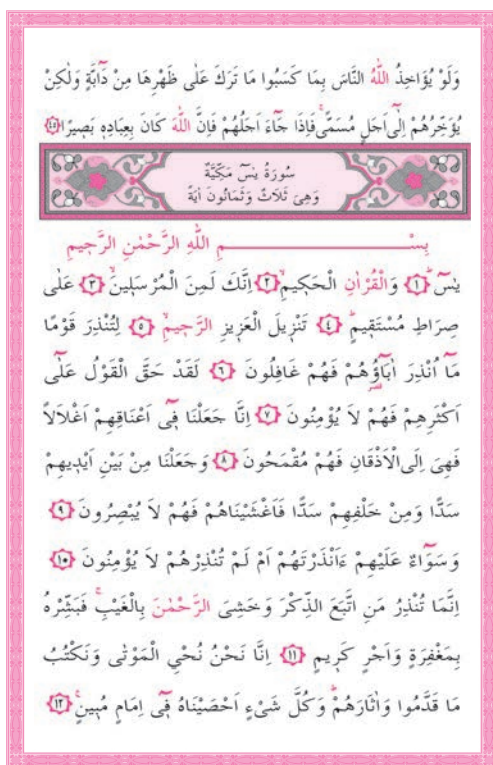 وَلَوْ يُؤَاخِذُ اللّٰهُ النَّاسَ بِمَا كَسَبُوا مَا تَرَكَ عَلٰى ظَهْرِهَا مِنْ دَٓابَّةٍ وَلٰكِنْ
يُؤَخِّرُهُمْ اِلٰٓى اَجَلٍ مُسَمًّىۚ فَاِذَا جَٓاءَ اَجَلُهُمْ فَاِنَّ اللّٰهَ كَانَ بِعِبَادِهٖ بَصٖيرًا ﴿٤٥﴾
سُورَةُ يٰسٓ مَكِّيَّةٌ
وَهِىَ ثَلَاثٌ وَثَمَانُونَ اٰيَةً
بِسْمِ اللّٰهِ الرَّحْمٰنِ الرَّحٖيمِ
يٰسٓۜ ﴿١﴾ وَالْقُرْاٰنِ الْحَكٖيمِۙ ﴿٢﴾ اِنَّكَ لَمِنَ الْمُرْسَلٖينَۙ ﴿٣﴾ عَلٰى
صِرَاطٍ مُسْتَقٖيمٍۜ ﴿٤﴾ تَنْزٖيلَ الْعَزٖيزِ الرَّحٖيمِۙ ﴿٥﴾ لِتُنْذِرَ قَوْمًا
مَٓا اُنْذِرَ اٰبَٓاؤُ۬هُمْ فَهُمْ غَافِلُونَ ﴿٦﴾ لَقَدْ حَقَّ الْقَوْلُ عَلٰٓى
اَكْثَرِهِمْ فَهُمْ لَا يُؤْمِنُونَ ﴿٧﴾ اِنَّا جَعَلْنَا فٖٓى اَعْنَاقِهِمْ اَغْلَالًا
فَهِىَ اِلَى الْاَذْقَانِ فَهُمْ مُقْمَحُونَ ﴿٨﴾ وَجَعَلْنَا مِنْ بَيْنِ اَيْدٖيهِمْ
سَدًّا وَمِنْ خَلْفِهِمْ سَدًّا فَاَغْشَيْنَاهُمْ فَهُمْ لَا يُبْصِرُونَ ﴿٩﴾
وَسَوَٓاءٌ عَلَيْهِمْ ءَاَنْذَرْتَهُمْ اَمْ لَمْ تُنْذِرْهُمْ لَا يُؤْمِنُونَ ﴿١٠﴾
اِنَّمَا تُنْذِرُ مَنِ اتَّبَعَ الذِّكْرَ وَخَشِىَ الرَّحْمٰنَ بِالْغَيْبِۚ فَبَشِّرْهُ
بِمَغْفِرَةٍ وَاَجْرٍ كَرٖيمٍ ﴿١١﴾ اِنَّا نَحْنُ نُحْىِ الْمَوْتٰى وَنَكْتُبُ
مَا قَدَّمُوا وَاٰثَارَهُمْۜ وَكُلَّ شَىْءٍ اَحْصَيْنَاهُ فٖٓى اِمَامٍ مُبٖينٍ۟ ﴿١٢﴾